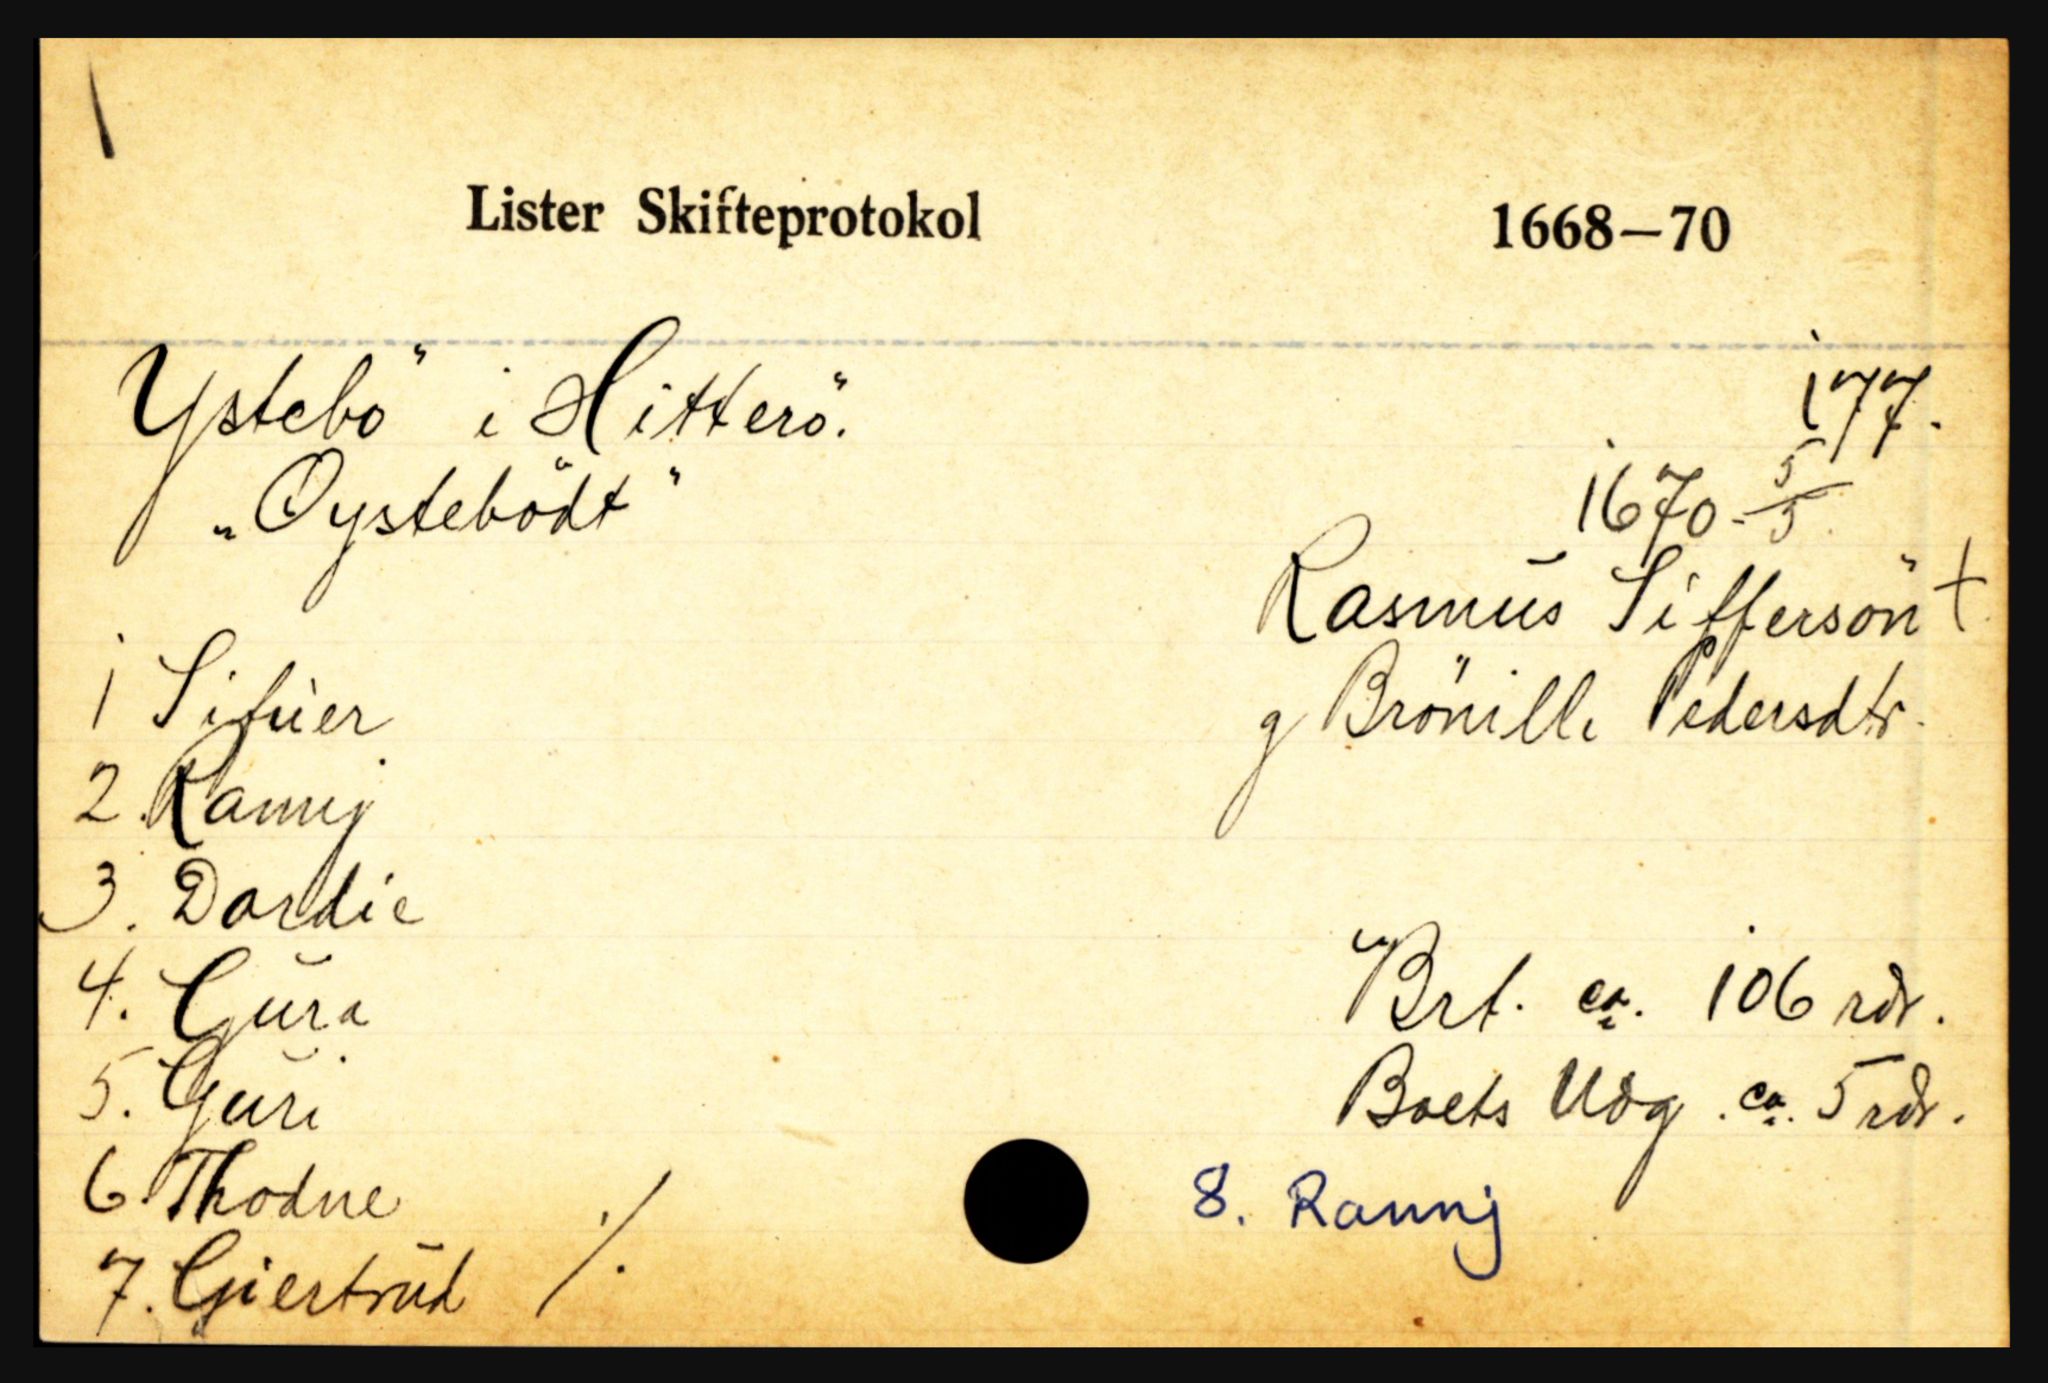 Lister Skifteprotokol 1668–70
Ystebö i Hitterö. 177.
„Oystebödt" 1670 - 5/5
Rasmus Siffersön †
g Brönille Pedersdtr.
1 Sifuer
2. Rannj
3. Dordie
4. Gura
5. Guri
6. Thodne
7. Giertrud ./.
Brt. ca. 106 rdr.
Boets Udg. ca. 5 rdr.
8. Rannj